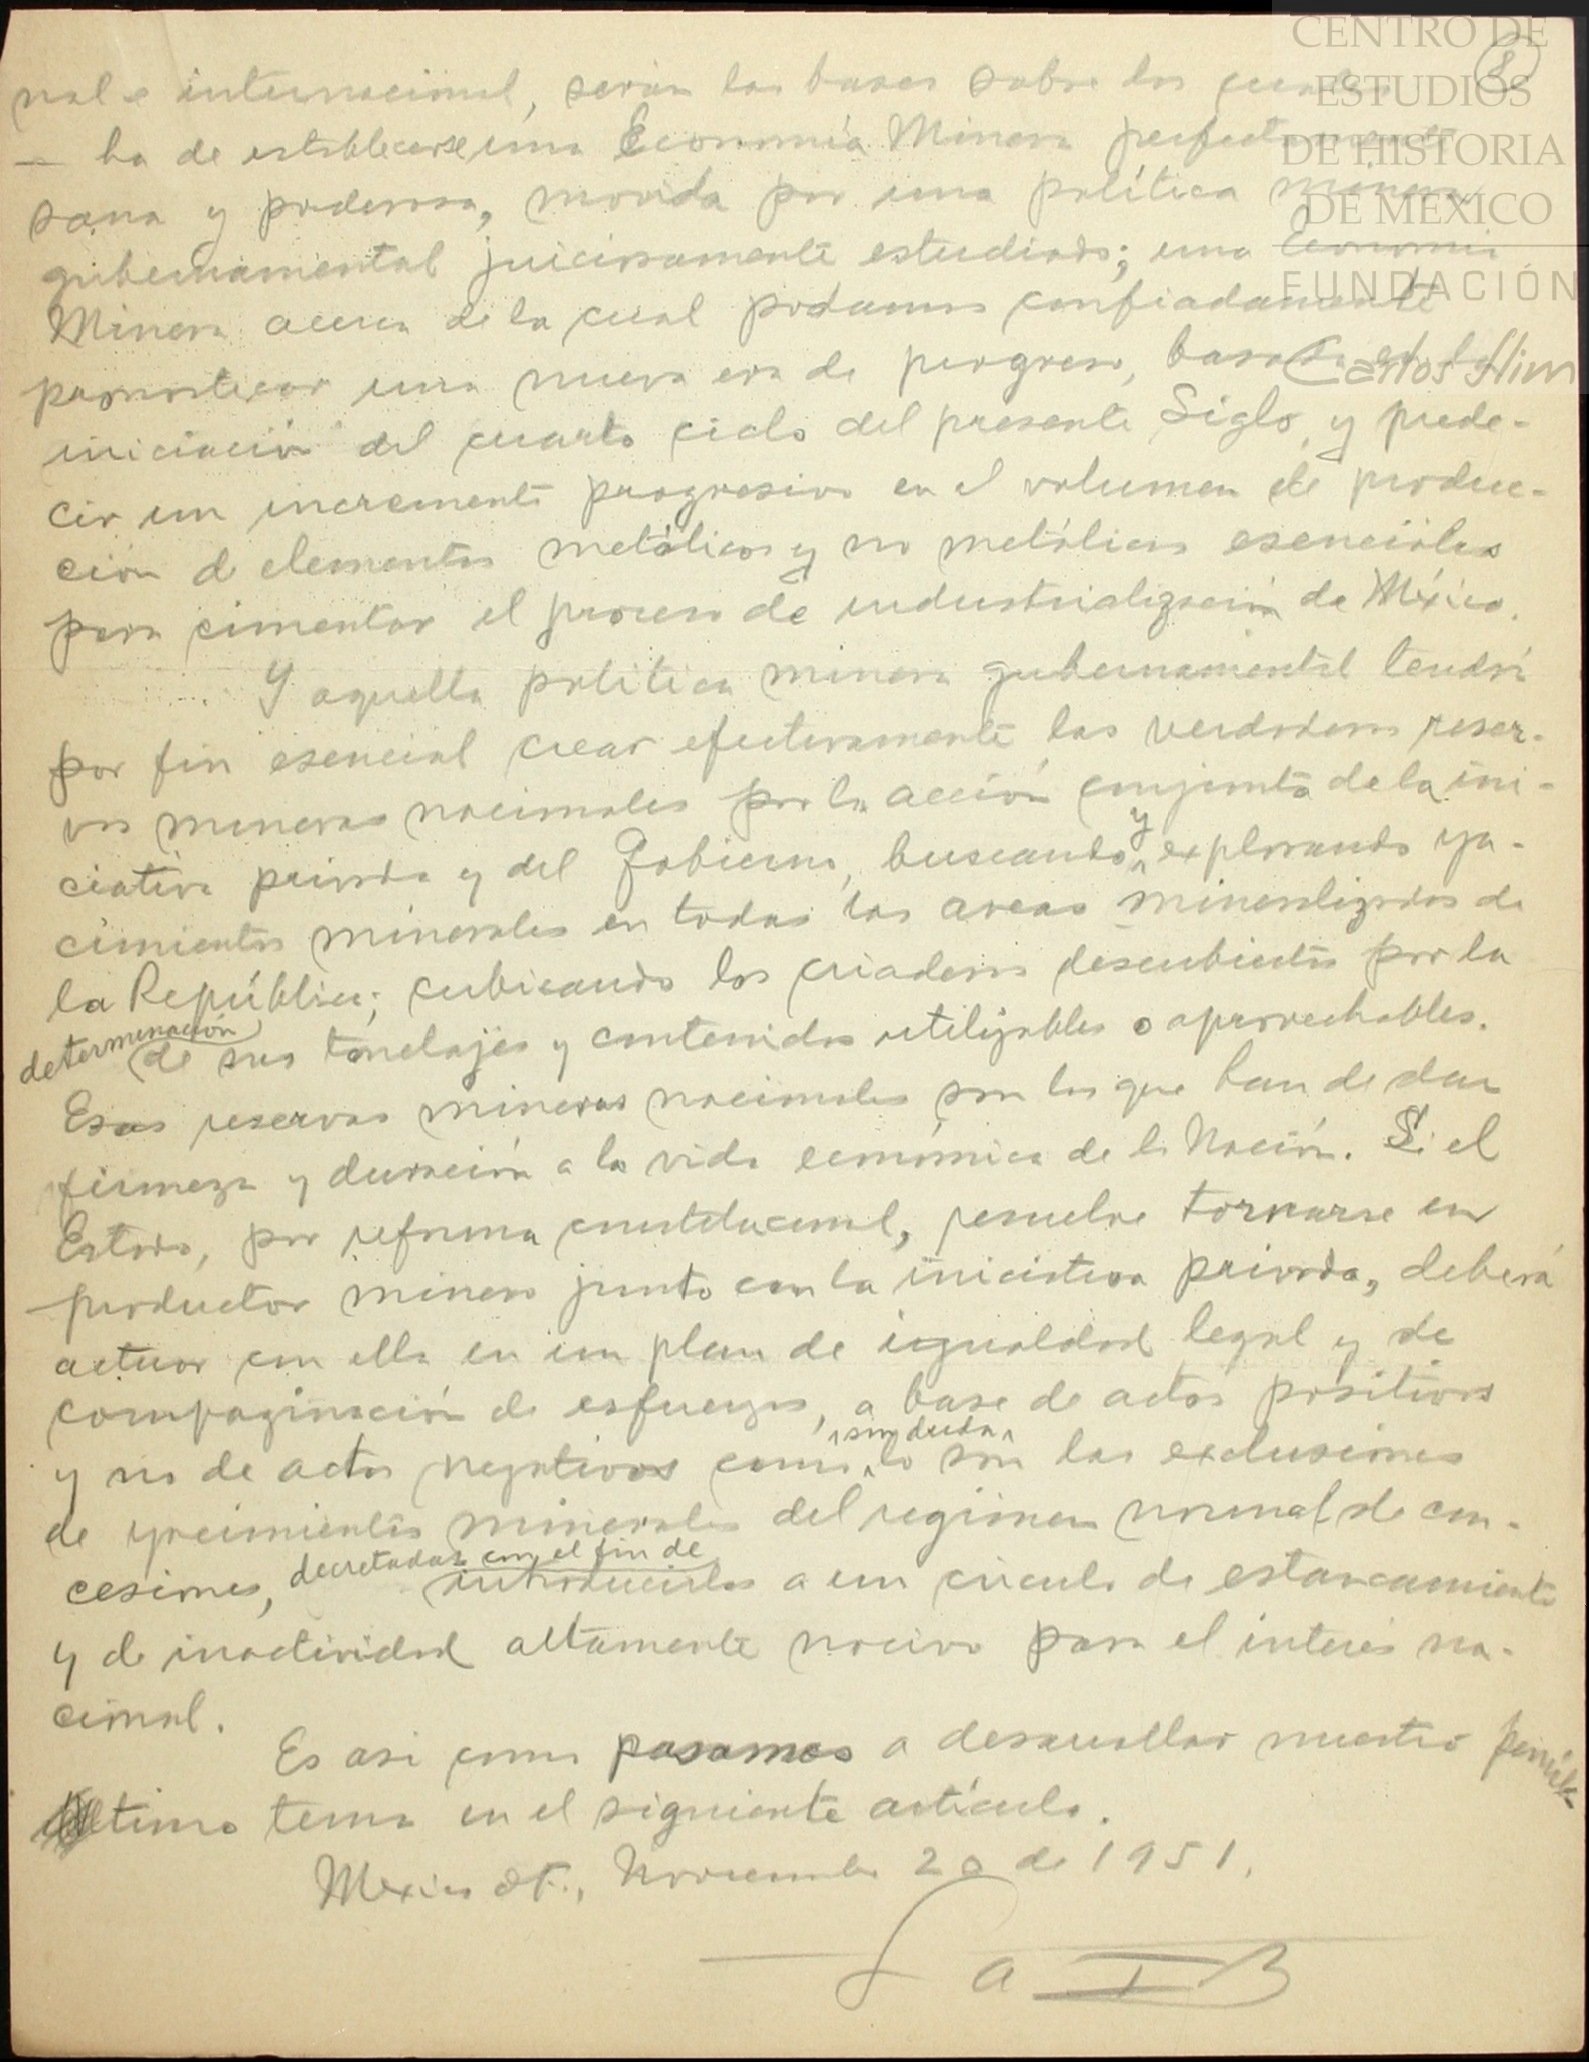 8
nal e internacional, serán las bases sobre las cuales
— ha de establecerse una Economía Minera perfectamente
sana y poderosa, movida por una política minera
gubernamental juiciosamente estudiada; una Economía
Minera acerca de la cual podamos confiadamente
pronosticar una nueva era de progreso, basada en la
iniciación del cuarto ciclo del presente Siglo, y prede-
cir un incremento progresivo en el volumen de produc-
ción de elementos metálicos y no metálicos esenciales
para cimentar el proceso de industrialización de México.
Y aquella política minera gubernamental tendrá
por fin esencial crear efectivamente las verdaderas reser-
vas mineras nacionales por la acción conjunta de la ini-
ciativa privada y del Gobierno, buscando y explorando ya-
cimientos minerales en todas las areas mineralizadas de
la República; cubicando los criaderos descubiertos por la
determinación de sus tonelajes y contenidos utilizables o aprovechables.
Esas reservas mineras nacionales son las que han de dar
firmeza y duración a la vida económica de la Nación. Si el
Estado, por reforma constitucional, resuelve tornarse en
productor minero junto con la iniciativa privada, deberá
actuar con ella en un plan de igualdad legal y de
compaginación de esfuerzos, a base de actos positivos
y no de actos negativos como sin duda lo son las exclusiones
de yacimientos minerales del regimen normal de con-
cesiones, decretadas con el fin de introducirlos a un circulo de estancamiento
y de inactividad altamente nocivo para el interés na-
cional.
Es asi como pasamos a desarrollar nuestro penúl-
timo tema en el siguiente artículo.
Mexico D.F., Noviembre 20 de 1951.
CENTRO DE
ESTUDIOS
DE HISTORIA
DE MEXICO
FUNDACIÓN
Carlos Slim